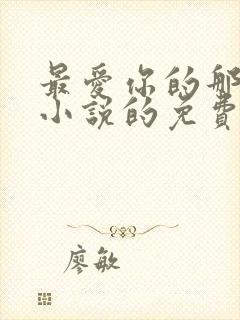 最愛你的那
小說的免費
廖敏